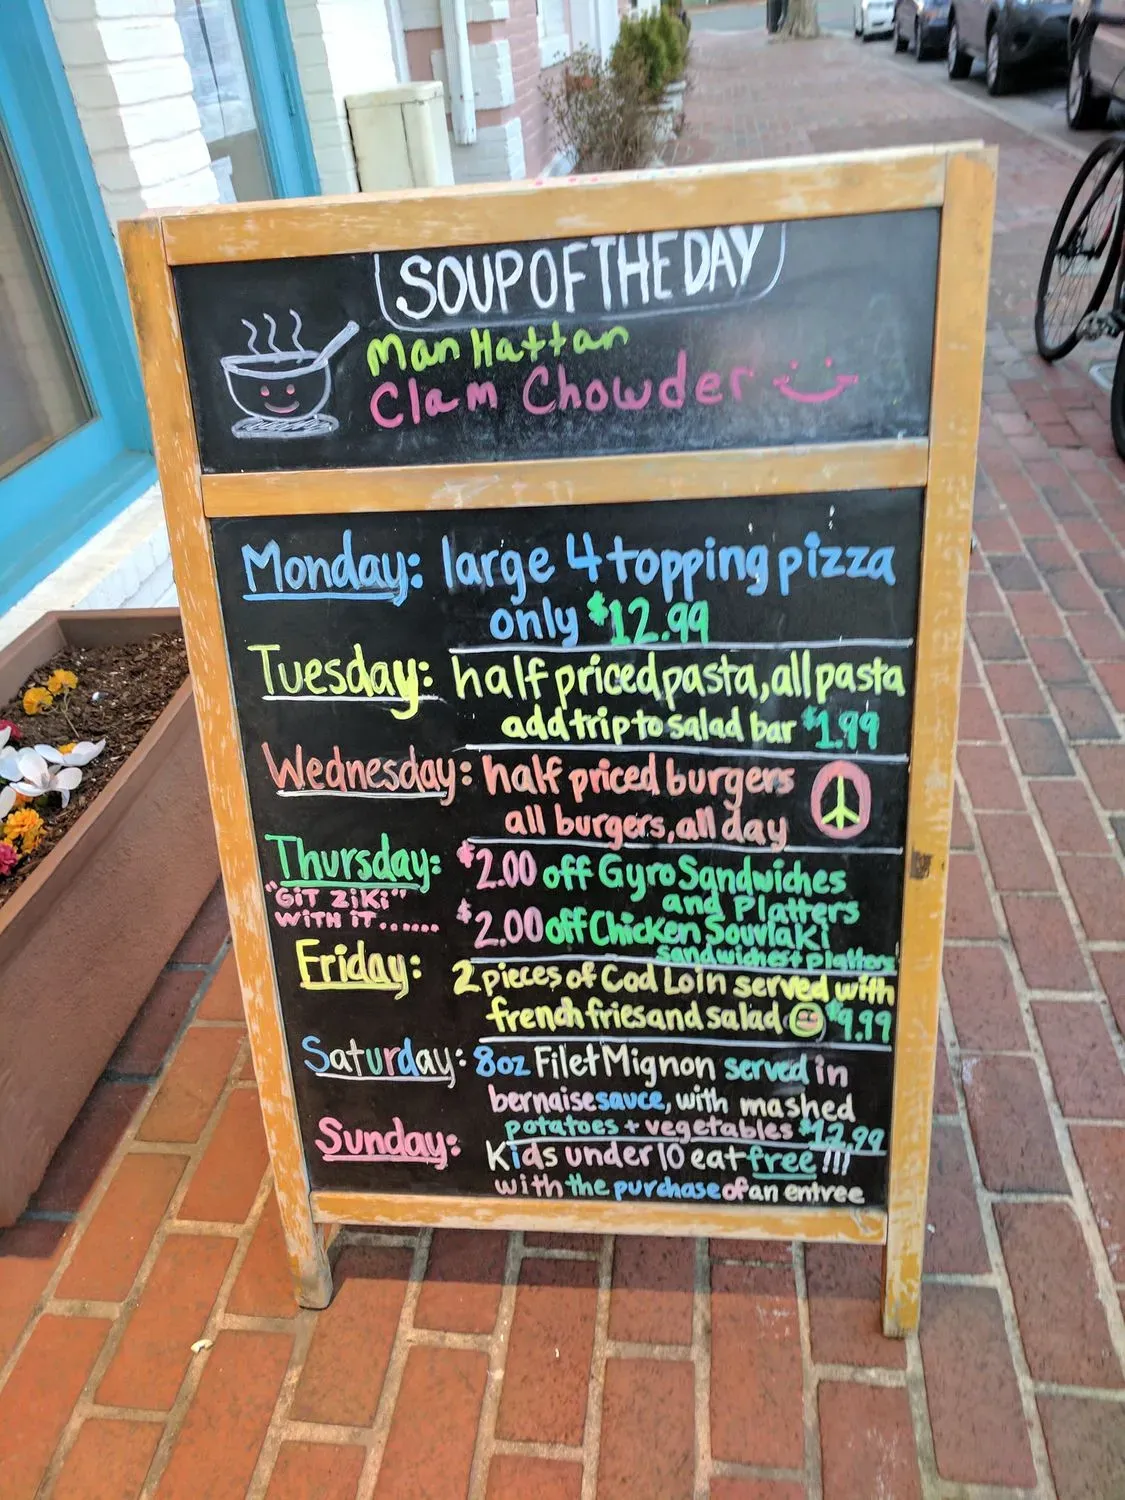 SOUP OF THE DAY
ManHattan
Clam Chowder
Monday: large 4 topping pizza
only $12.99
Tuesday: half priced pasta, all pasta
add trip to salad bar $1.99
Wednesday: half priced burgers
all burgers, all day
Thursday: $2.00 off Gyro Sandwiches
"GiT ZiKi" and Platters
WiTH iT...... $2.00 off Chicken Souvlaki
Sandwiches + platters
Friday: 2 pieces of Cod Loin served with
french fries and salad $9.99
Saturday: 8oz Filet Mignon served in
bernaise sauce, with mashed
potatoes + vegetables $12.99
Sunday: Kids under 10 eat free!!!
with the purchase of an entree